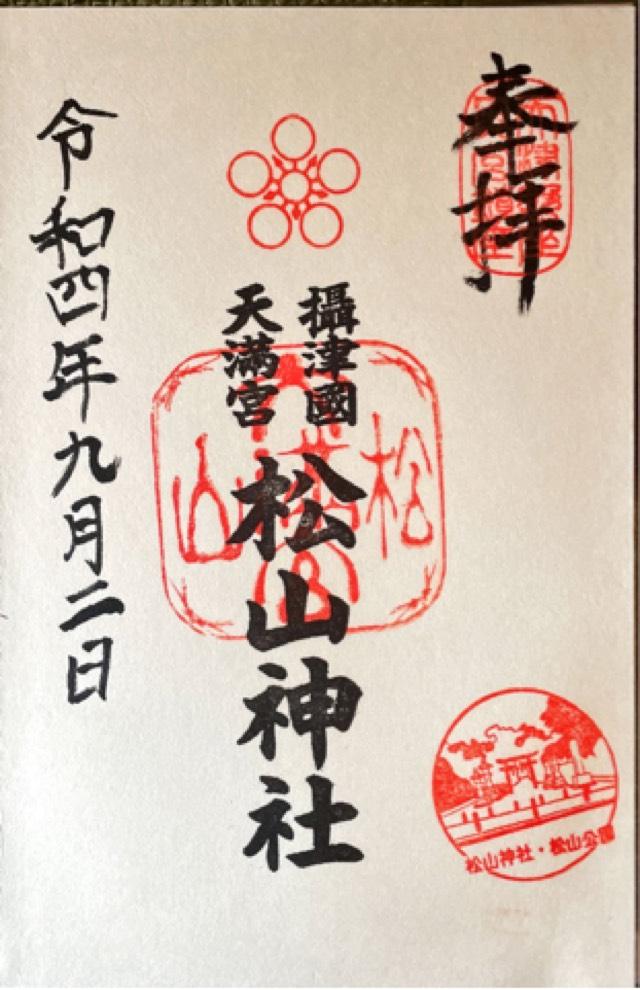 奉拝
攝津國
天満宮
松山神社
令和四年九月二日
松山神社・松山公園